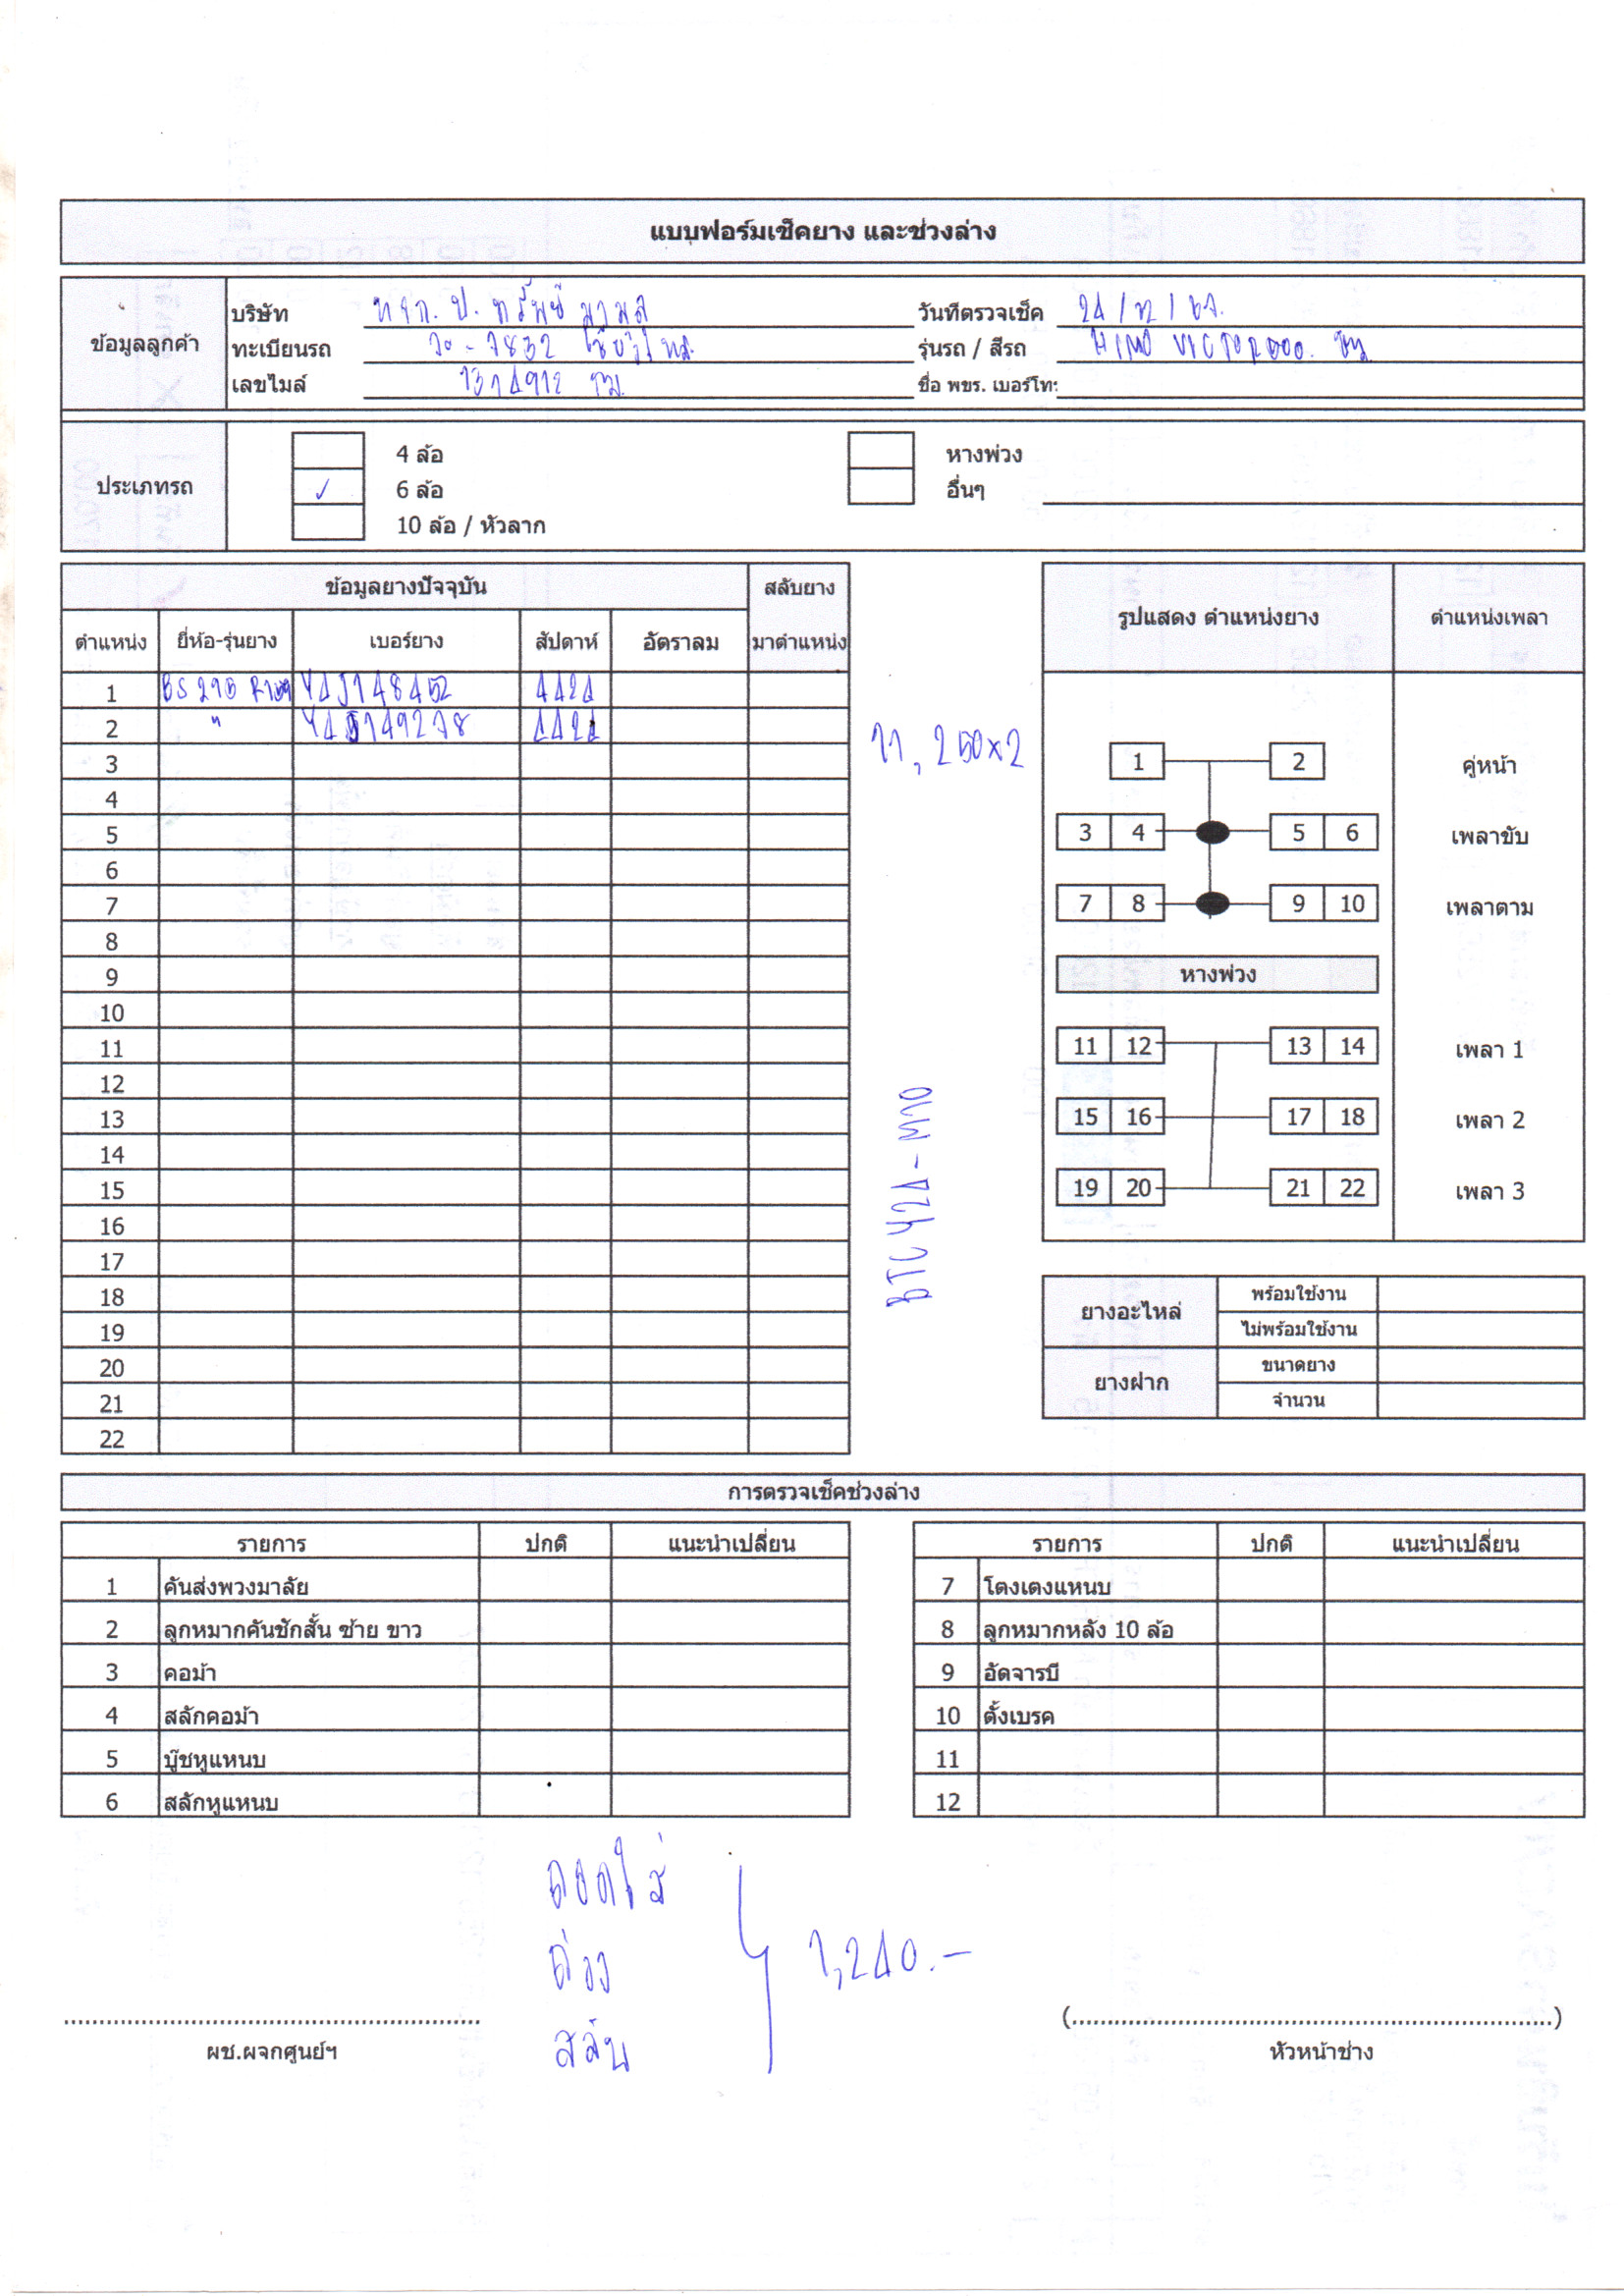 แบบฟอร์มเช็คยาง และช่วงล่าง
ข้อมูลลูกค้า
บริษัท หจก. ป. ทรัพย์
วันที่ตรวจเช็ค 24 / 12 / 67
ทะเบียนรถ 70-7832
รุ่นรถ / สีรถ HINO VICTOR 500.
เลขไมล์ กม.
ชื่อ พขร. เบอร์โท:
ประเภทรถ
4 ล้อ
หางพ่วง
✓ 6 ล้อ
อื่นๆ
10 ล้อ / หัวลาก
ข้อมูลยางปัจจุบัน สลับยาง
ตำแหน่ง ยี่ห้อ-รุ่นยาง เบอร์ยาง สัปดาห์ อัตราลม มาตำแหน่ง
1 BS 295 Y4J148452 4424
2 " 4424
3
4
5
6
7
8
9
10
11
12
13
14
15
16
17
18
19
20
21
22
11,250x2
BTC 424-M10
รูปแสดง ตำแหน่งยาง ตำแหน่งเพลา
1 2 คู่หน้า
3 4 5 6 เพลาขับ
7 8 9 10 เพลาตาม
หางพ่วง
11 12 13 14 เพลา 1
15 16 17 18 เพลา 2
19 20 21 22 เพลา 3
ยางอะไหล่ พร้อมใช้งาน
ไม่พร้อมใช้งาน
ยางฝาก ขนาดยาง
จำนวน
การตรวจเช็คช่วงล่าง
รายการ ปกติ แนะนำเปลี่ยน
1 คันส่งพวงมาลัย
2 ลูกหมากคันชักสั้น ซ้าย ขาว
3 คอม้า
4 สลักคอม้า
5 บู๊ชหูแหนบ
6 สลักหูแหนบ
รายการ ปกติ แนะนำเปลี่ยน
7 โตงเตงแหนบ
8 ลูกหมากหลัง 10 ล้อ
9 อัดจารบี
10 ตั้งเบรค
11
12
ถอดใส่
ถ่วง
สลับ
1,240.-
ผช.ผจกศูนย์ฯ
(..........)
หัวหน้าช่าง